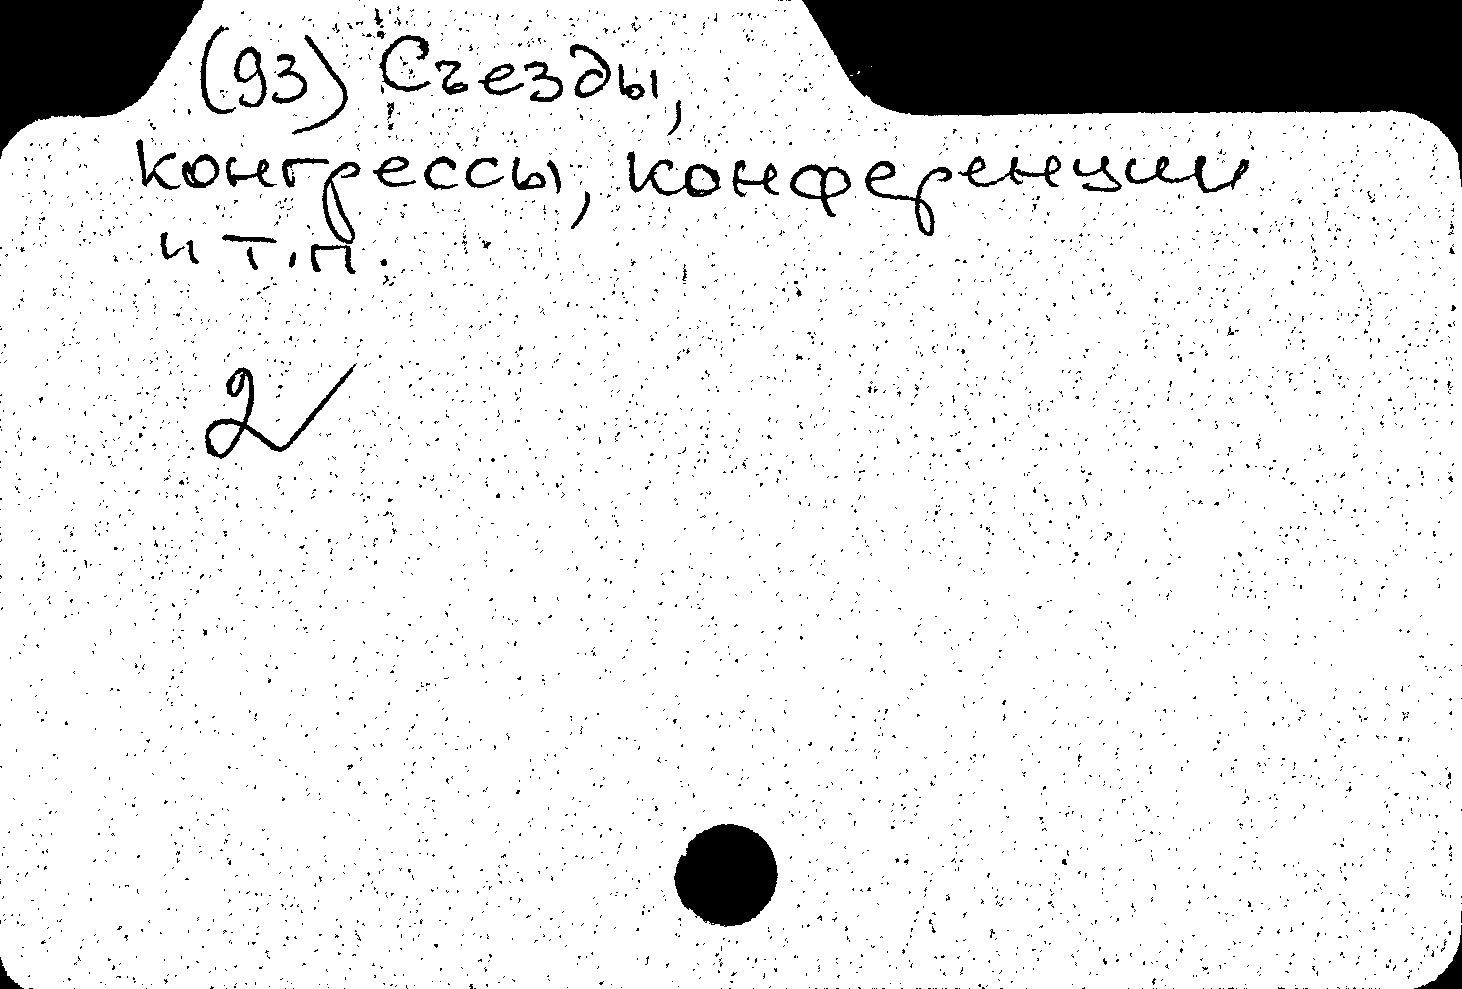 (93) Съезды,
конгрессы, конференции
и т.п.
2✓